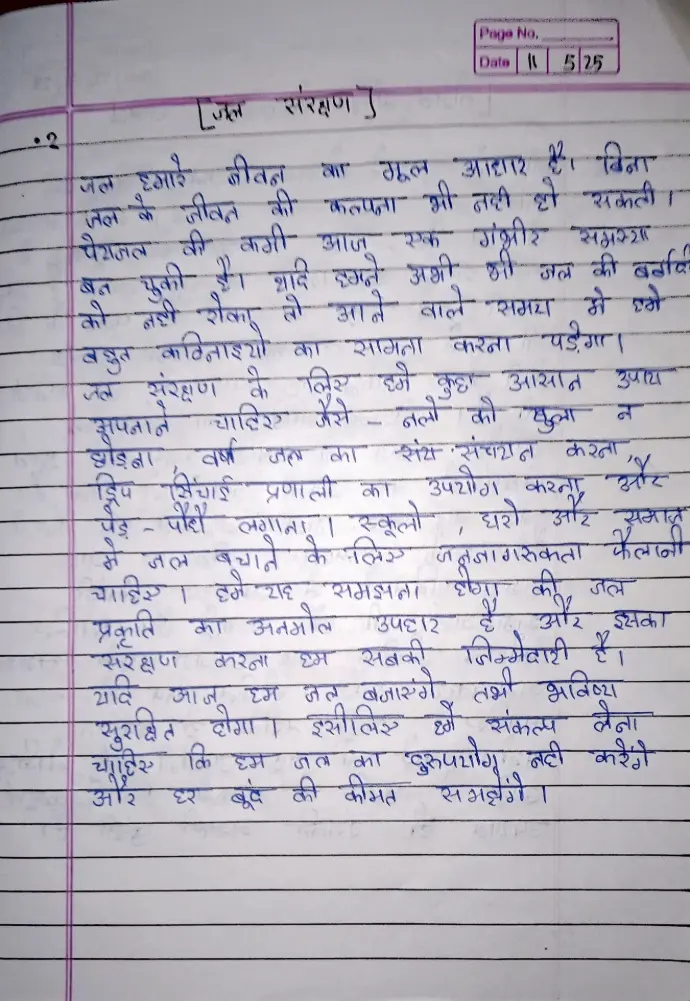 Page No.
Date 11 5 25
[जल संरक्षण]
.2
जल हमारे जीवन का मूल आधार है। बिना
जल के जीवन की कल्पना भी नही हो सकती।
पेयजल की कमी आज एक गंभीर समस्या
बन चुकी है। यदि हमने अभी भी जल की बर्बादी
को नही रोका तो आने वाले समय मे हमे
बहुत कठिनाइयो का सामना करना पड़ेगा।
जल संरक्षण के लिए हमे कुछ आसान उपाय
अपनाने चाहिए जैसे - नलो को खुला न
छोड़ना, वर्षा जल का संचयन करना,
ड्रिप सिंचाई प्रणाली का उपयोग करना और
पेड़ - पौधे लगाना। स्कूलो, घरो और समाज
मे जल बचाने के लिए जनजागरूकता फैलानी
चाहिए। हमे यह समझना होगा की जल
प्रकृति का अनमोल उपहार है और इसका
संरक्षण करना हम सबकी जिम्मेदारी है।
यदि आज हम जल बजाएंगे तभी भविष्य
सुरक्षित होगा। इसीलिए हमे संकल्प लेना
चाहिए कि हम जल का दुरुपयोग नही करेंगे
और हर बूंद की कीमत समझेंगे।